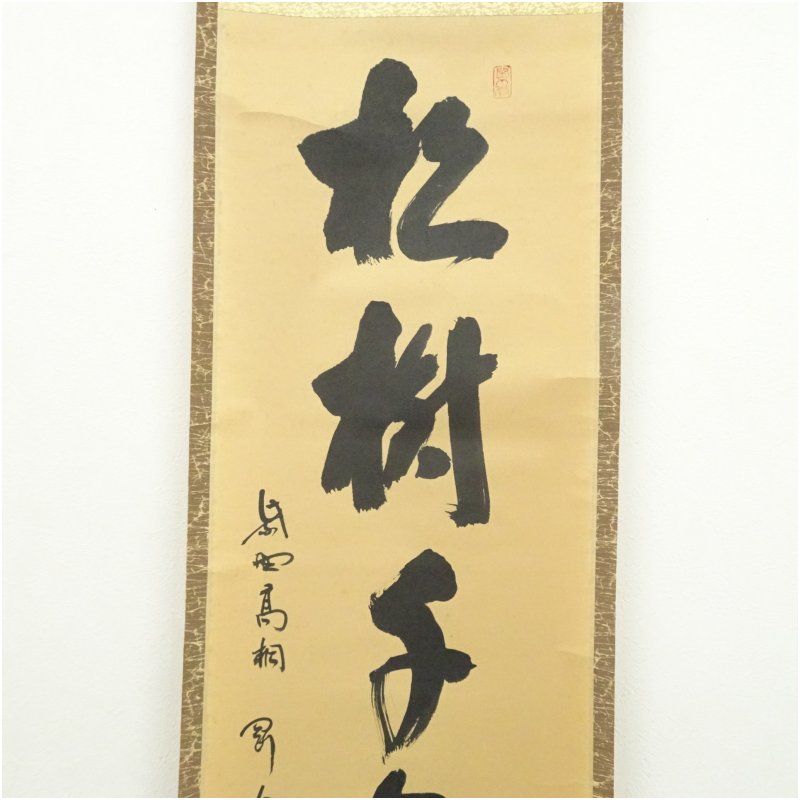 松樹千
紫野高桐 剛